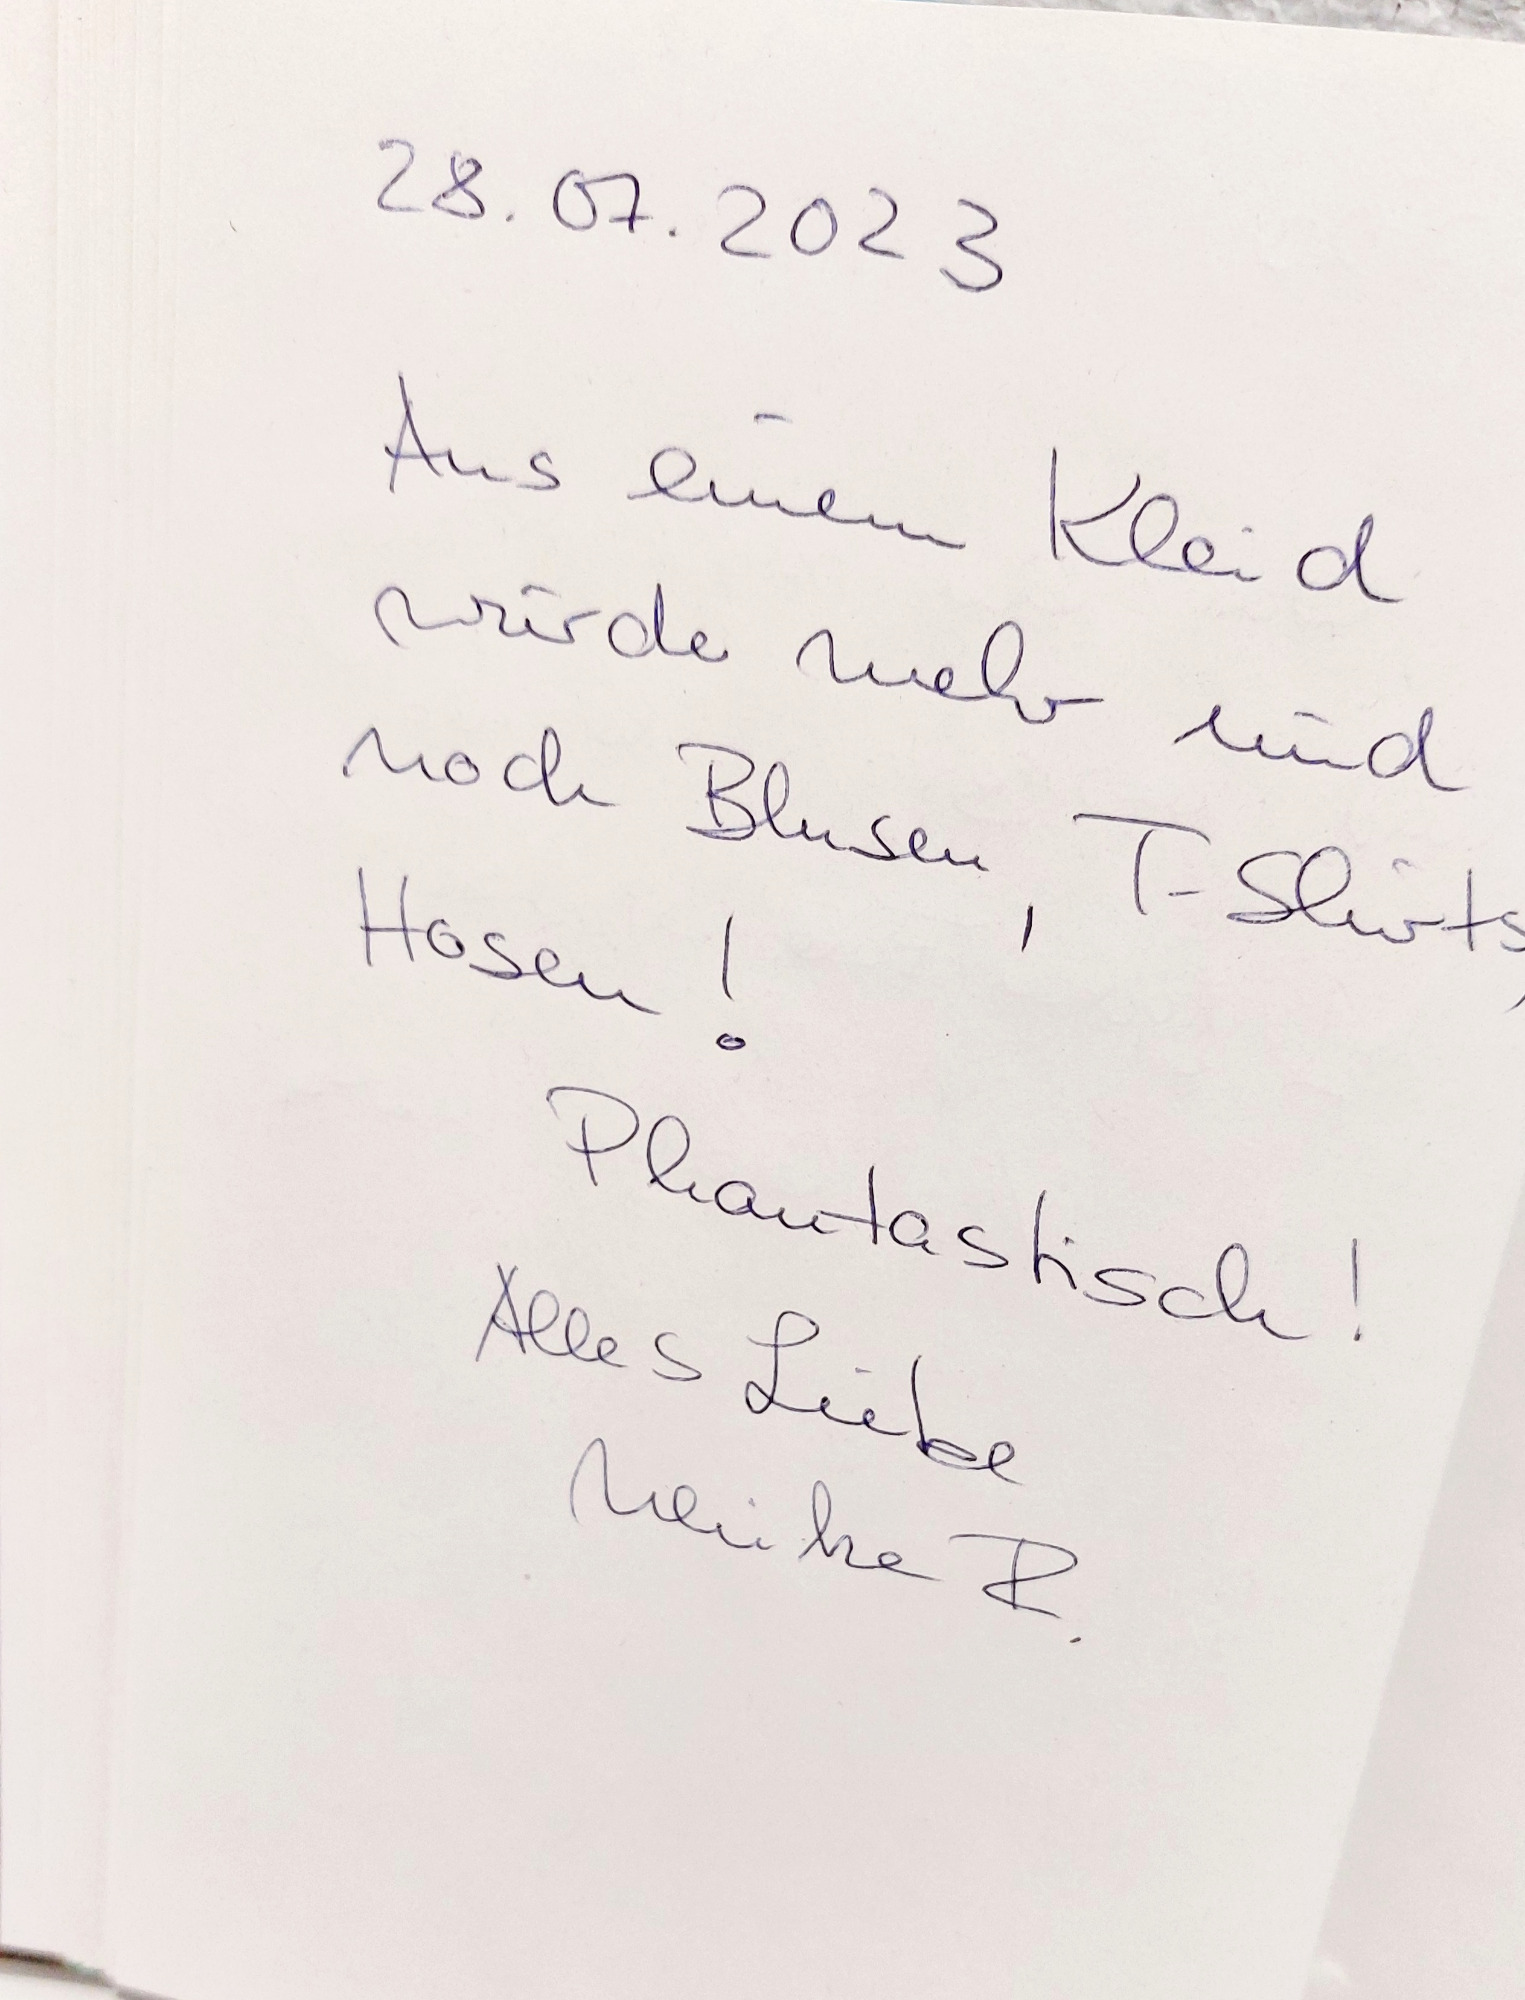 28.07.2023
Aus einem Kleid
würde mehr und
noch Blusen, T-Shirts,
Hosen!
Phantastisch!
Alles Liebe
Meike R.